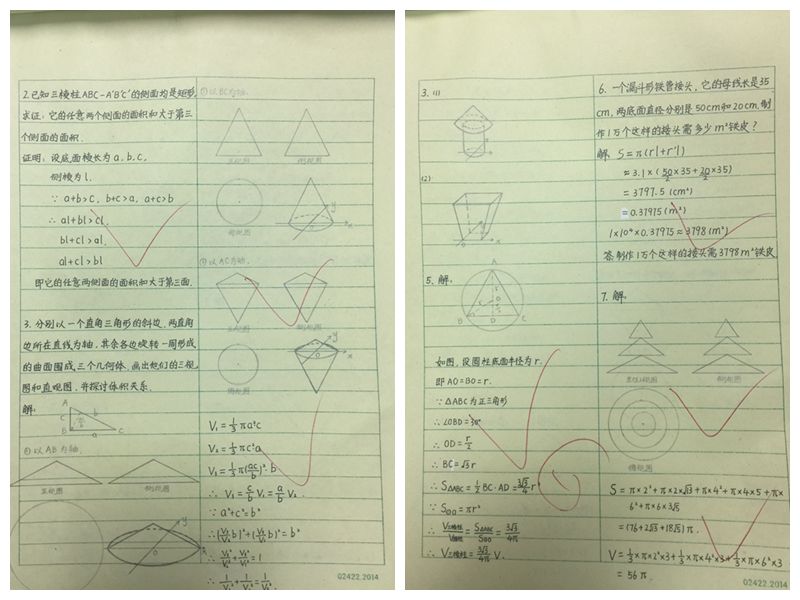 2.已知三棱柱ABC-A'B'C'的侧面均是矩形,
求证:它的任意两个侧面的面积和大于第三
个侧面的面积.
证明:设底面棱长为a,b,c,
侧棱为l.
∵ a+b>c, b+c>a, a+c>b
∴ al+bl>cl,
bl+cl>al,
al+cl>bl
即它的任意两侧面的面积和大于第三面.
3. 分别以一个直角三角形的斜边,两直角
边所在直线为轴,其余各边旋转一周形成
的曲面围成三个几何体,画出他们的三视
图和直观图,并探讨体积关系.
解:
A
C
b
B
a
C
以AB为轴.
正视图
侧视图
y
0
x
①以BC为轴.
正视图
侧视图
俯视图
y
x
以AC为轴.
正视图
侧视图
俯视图
y
0
x
V₁=1/3πa²c
V₂=1/3πc²a
V₃=1/3π(ac/b)²·b
∴ V₃=c/b V₁=a/b V₂.
∵ a²+c²=b²
∴(V₃/V₂ b)²+(V₃/V₁ b)²=b²
∴ V₃²/V₂²+V₃²/V₁²=1
∴ 1/V₁²+1/V₂²=1/V₃².
02422.2014
3. (1)
(2)
y
0
x
5. 解:
A
O
r
B
D
C
如图,设圆柱底面半径为r.
即AO=BO=r.
∵ △ABC为正三角形
∴ ∠OBD=30°
∴ OD=r/2
∴ BC=√3r
∴ S△ABC=1/2BC·AD=3√3/4r²
∴ V三棱柱/V圆柱=S△ABC/S⊙O=3√3/4π
∴ V三棱柱=3√3/4π V.
6. 一个漏斗形铁管接头,它的母线长是35
cm,两底面直径分别是50cm和20cm,制
作1万个这样的接头需多少m²铁皮?
解: S=π(rl+r'l)
≈3.1×(50/2×35+20/2×35)
=3797.5(cm²)
=0.37975(m²)
1×10⁴×0.37975≈3798(m²)
答:制作1万个这样的接头需3798m²铁皮
7. 解:
侧视图
俯视图
S=π×2²+π×2×√13+π×4²+π×4×5+π×
6²+π×6×3√5
=(76+2√13+18√5)π.
V=1/3×π×2²×3+1/3×π×4²×3+1/3×π×6²×3
=56π.
02422.2014